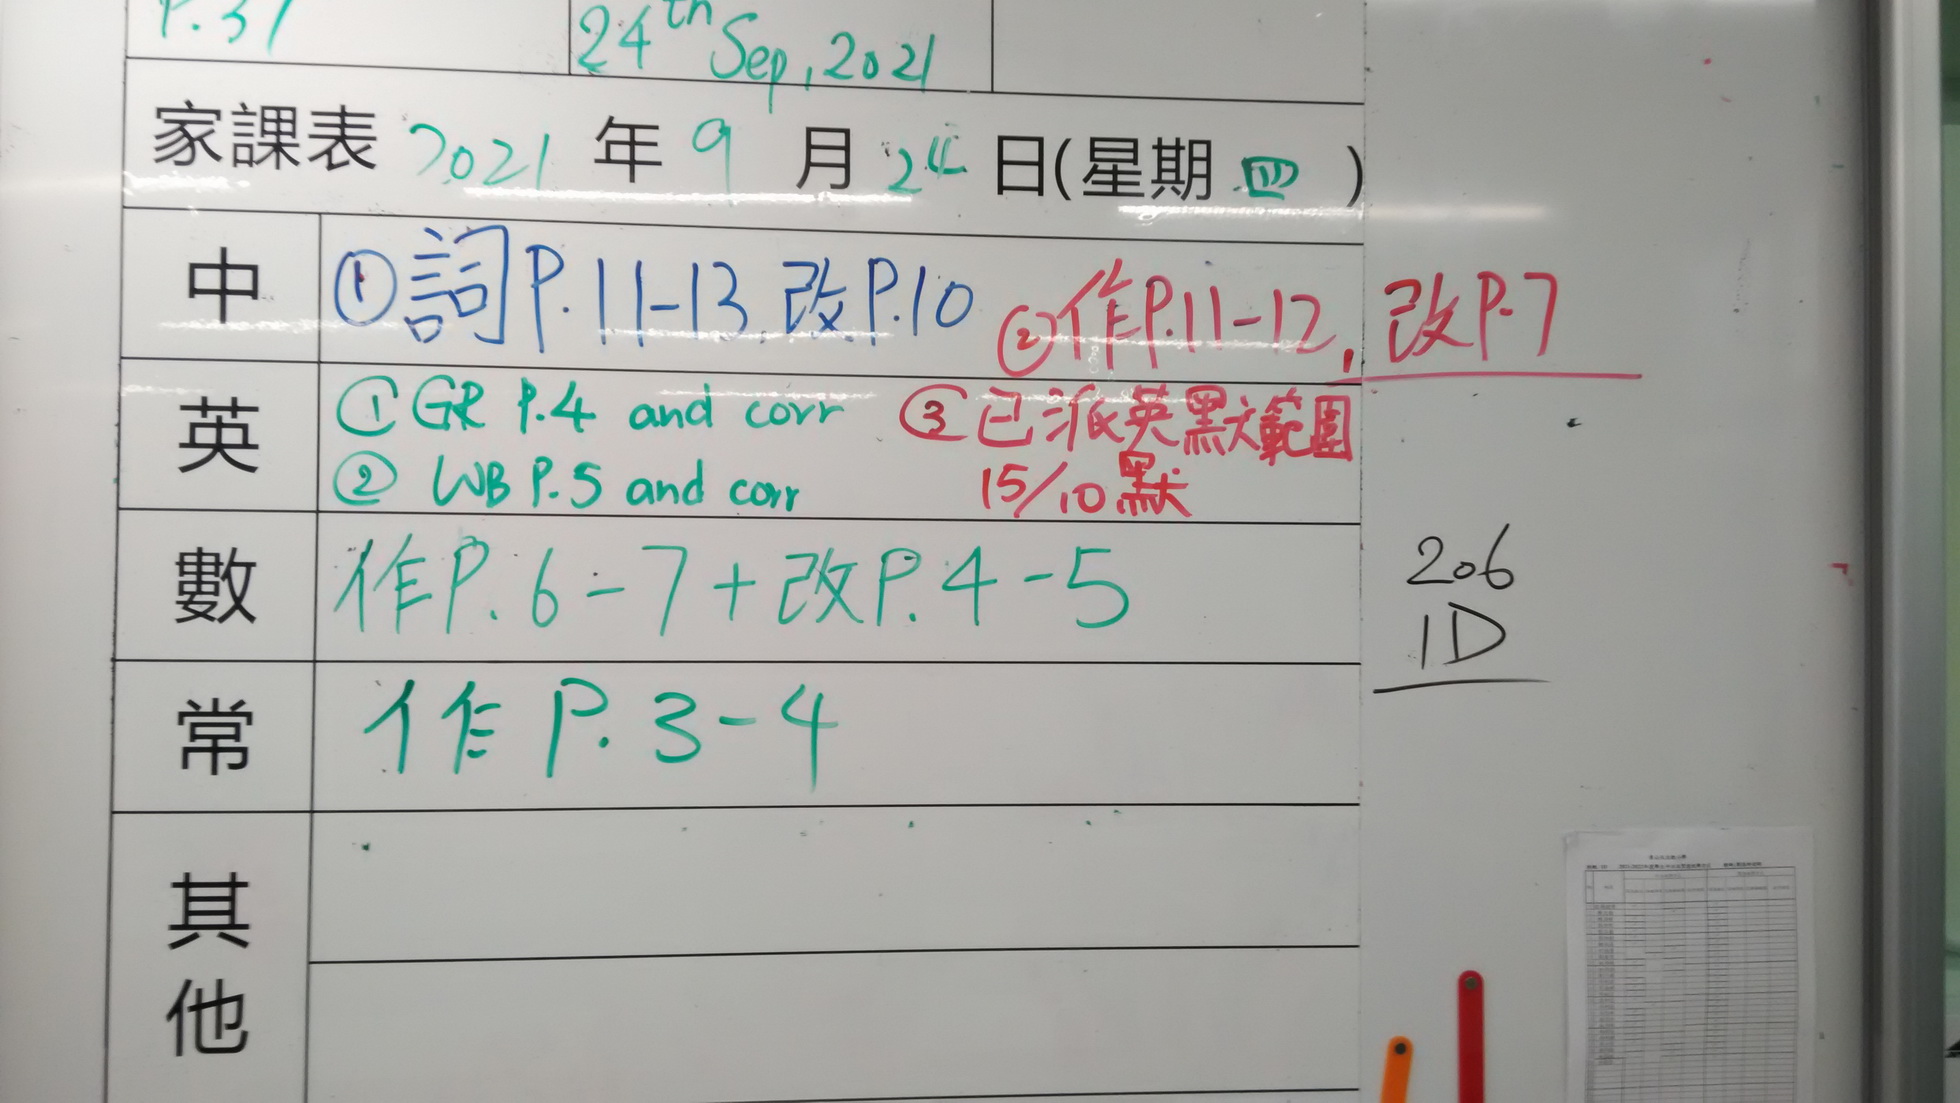 P.37
24th Sep, 2021
家課表 2021 年 9 月 24 日(星期 四 )
中 ①詞P.11-13,改P.10 ②作P.11-12, 改P.7
英 ①GR P.4 and corr ③已派英默範圍
② WB P.5 and corr 15/10默
數 作P. 6-7+改P.4-5
常 作 P. 3-4
其他
206
1D